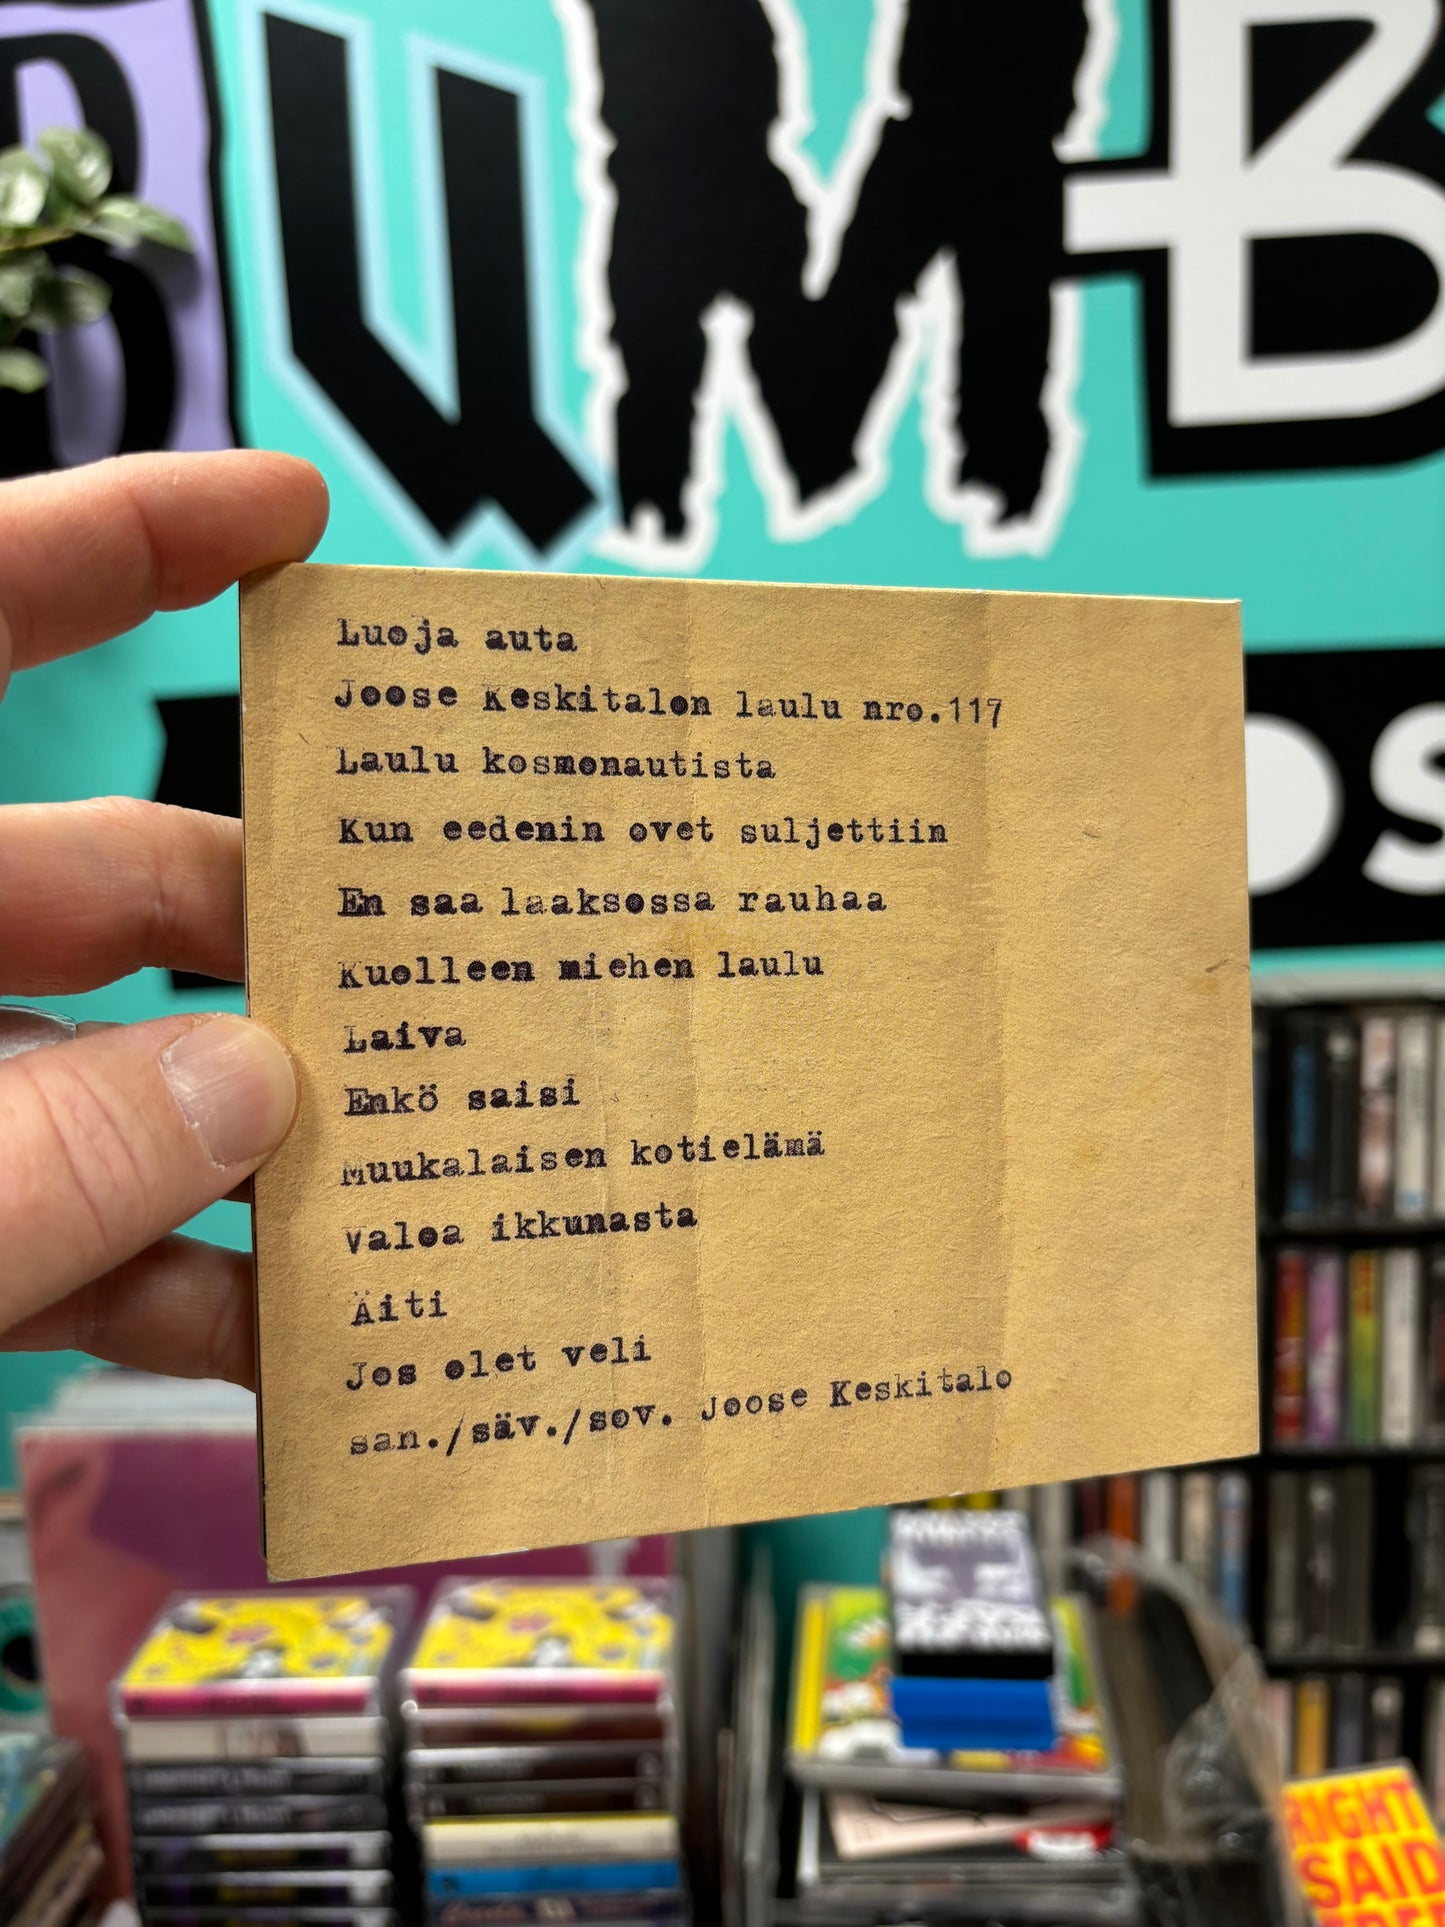 UMB
OS
Luoja auta
Joose Keskitalon laulu nro.117
Laulu kosmonautista
Kun eedenin ovet suljettiin
En saa laaksossa rauhaa
Kuolleen miehen laulu
Laiva
Enkö saisi
Muukalaisen kotielämä
Valoa ikkunasta
Äiti
Jos olet veli
san./säv./sov. Joose Keskitalo
RIGHT
SAID
FRED